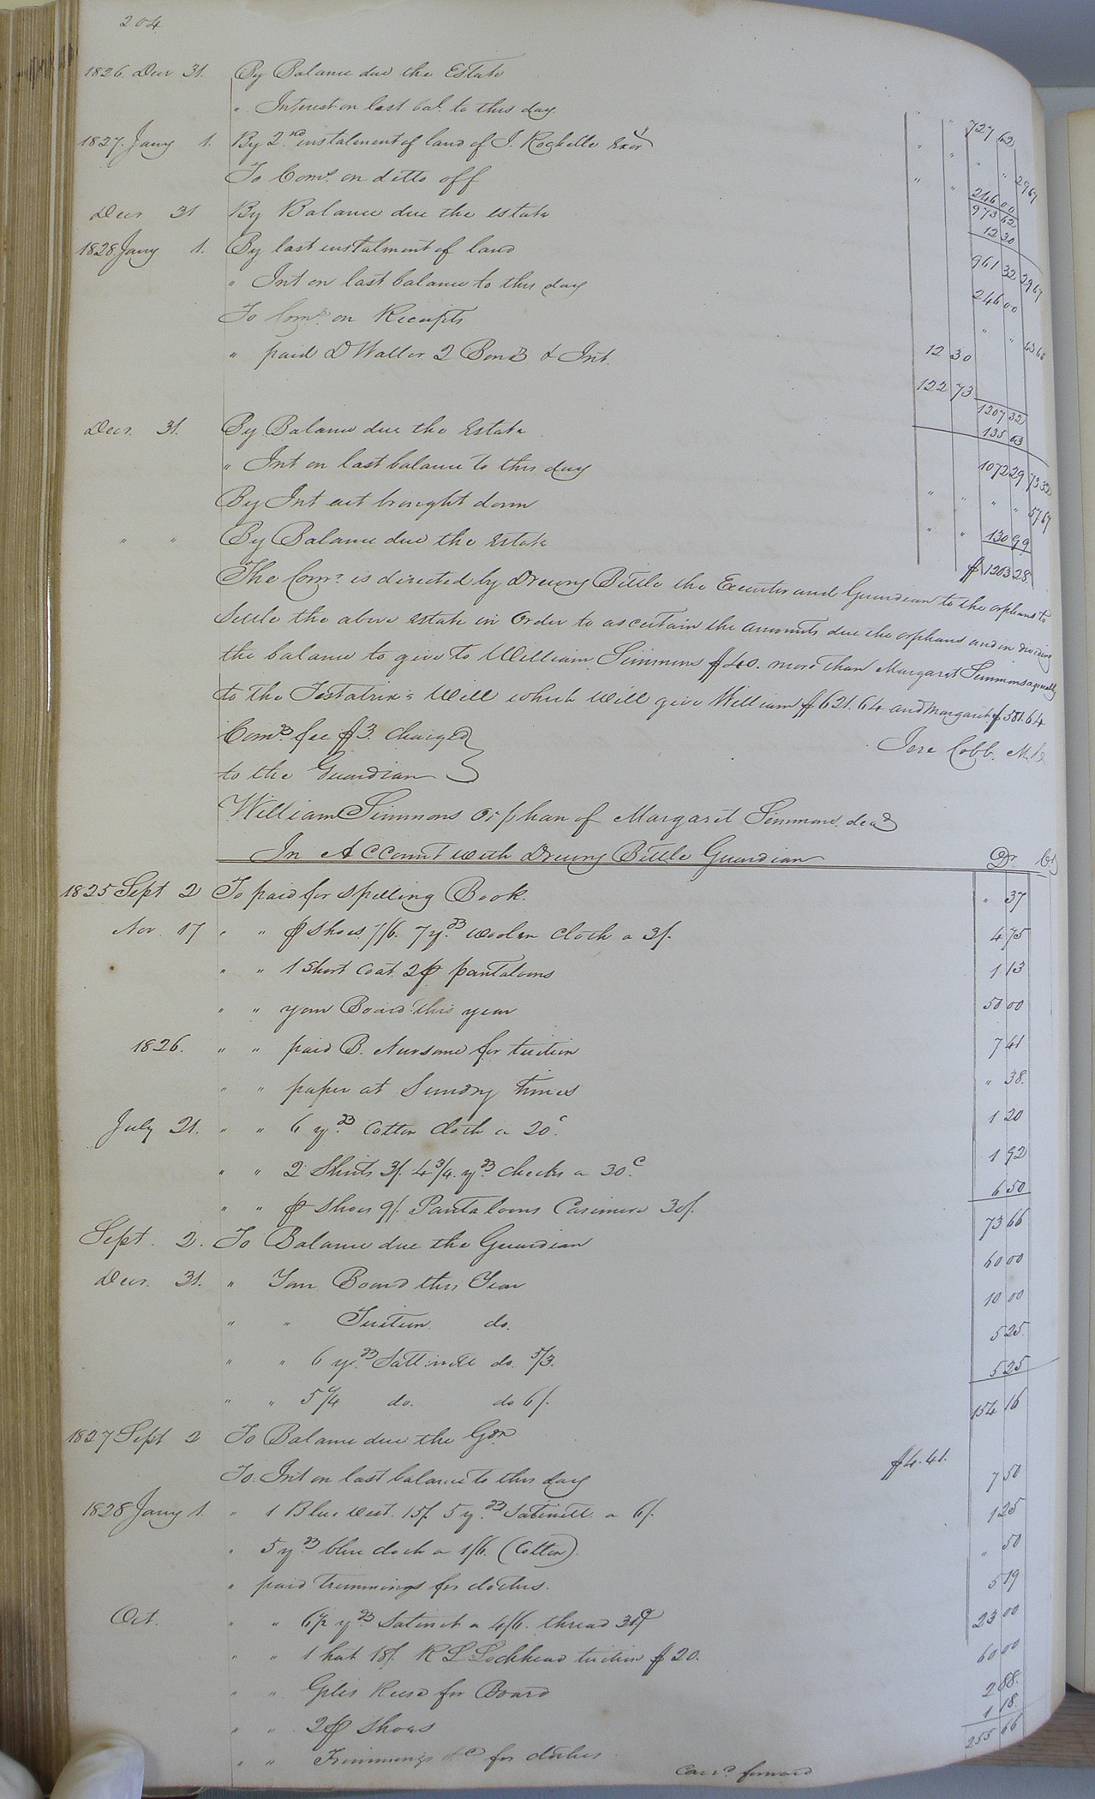 204
1826. Decr 31. By Balance due the Estate " " 727 62
" Interest on last bal. to this day " " " " 29 67
1827. Jany 1. By 2nd instalment of land of J. Rochelle Exor " " 246 00
973 62
To Coms. on ditto off 12 30
Decr 31 By Balance due the estate 961 32 29 67
1828 Jany 1. By last instalment of land 246 00
" Int on last balance to this day " " 43 65
To Coms. on Receipts 12 30
" paid D Waller 2 Bonds & Int. 122 73
1207 32
135 03
Decr. 31. By Balance due the Estate 1072 29 73 32
" Int on last balance to this day " " " " 57 67
By Int act brought down " " 130 99
" " By Balance due the estate $ 1203 28
The Comr. is directed by Drewry Bittle the Executor and Guardian to the orphans to
Settle the above estate in order to ascertain the amounts due the orphans and in dividing
the balance to give to William Simmons $40. more than Margaret Simmons agreeably
to the Testatrix's Will which will give William $621.64 and Margaret $581.64
Coms fee $3. Charged Jere Cobb.
to the Guardian
William Simmons Orphan of Margaret Simmons decd
In Account with Drewry Bittle Guardian Dr. Cr
1825 Sept 2 To paid for Spelling Book. " 37
Nov. 17 " " pr Shoes 7/6. 7 yds woolen cloth a 3/. 4 75
" " 1 Short coat 2 pr pantaloons 1 13
" " your Board this year 50 00
1826. " " paid B. Newsome for tuition 7 41
" " paper at Sundry times " 38.
July 21. " " 6 yds Cotton cloth a 20c. 1 20
" " 2 Shirts 3/. 4 3/4 yds checks a 30c. 1 92
" " pr Shoes 9/. Pantaloons Casimere 30/. 6 50
Sept. 2. To Balance due the Guardian 73 66
Decr. 31. " Your Board this Year 60 00
" " Tuition do. 10 00
" " 6 yds Sattinett do. 5/3. 5 25
" " 5 1/4 do. do 6/. 5 25
1827 Sept 2 To Balance due the Gdn 154 16
To Int on last balance to this day $4.41.
1828 Jany 1. " 1 Blue vest. 15/. 5 yds Satinett a 6/. 7 50
" 5 yds blue cloth a 1/6. (Cotton) 1 25
" paid trimmings for clothes. " 50
Oct. " " 6 1/2 yds Satinet a 4/6. thread 5 19
" " 1 hat 18/. R S Lockhead tuition $20. 23 00
" " Giles Reese for Board 60 00
" " 2 pr Shoes 2 88.
" " Trimmings &c for clothes 1 18.
Carrd forward 255 66